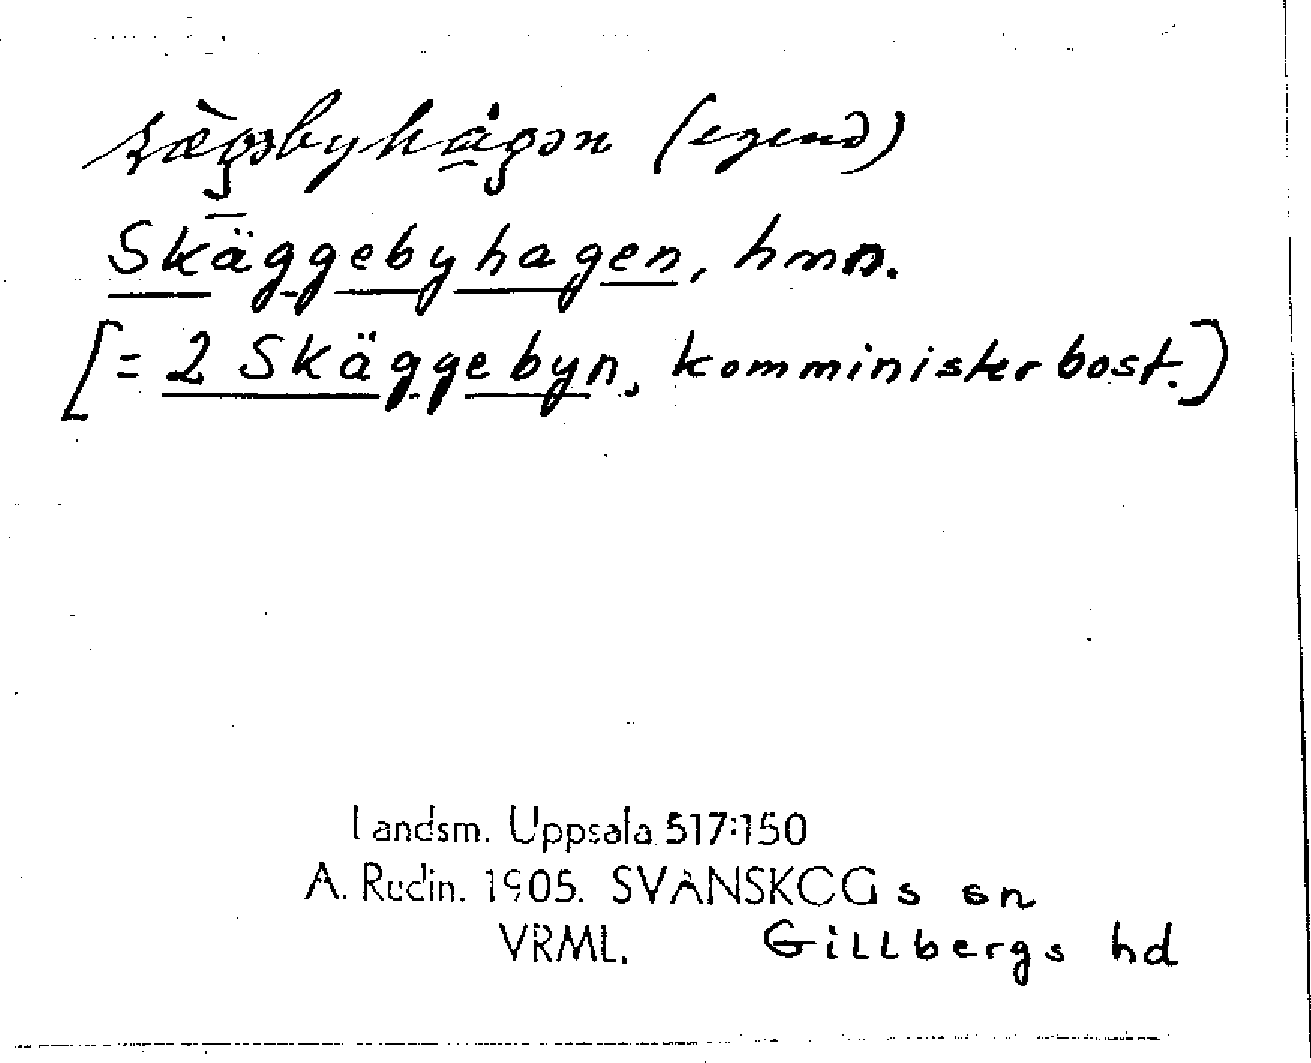 Skäggebyhagen, hmn.
[= 2 Skäggebyn, komministerbost.]
Landsm. Uppsala 517:150
A. Rudin. 1905. SVANSKOG s sn
VRML. Gillbergs hd